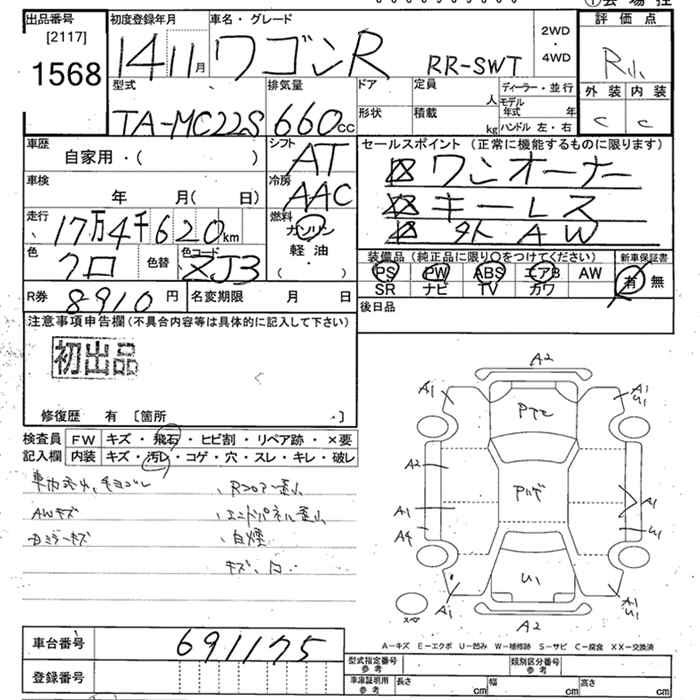 出品番号 初度登録年月 車名・グレード 評価点
[2117]
1568
14 11月 ワゴンR RR-SWT 2WD・4WD
外装 内装
C C
型式 排気量 ドア 定員 人 ディーラー・並行
TA-MC22S 660cc 形状 積載 kg モデル年式 年
ハンドル 左・右
車歴 シフト セールスポイント (正常に機能するものに限ります)
自家用・( ) AT ワンオーナー
車検 冷房 キーレス
年 月( 日) AAC 外AW
走行 燃料
17万4千620km ガソリン
軽油
・
( )
色 色替 色コード 装備品 (純正品に限り○をつけてください) 新車保証書
クロ ZJ3 PS PW ABS エアB AW 有・無
SR ナビ TV カワ
R券 8910円 名変期限 月 日 後日品
注意事項申告欄 (不具合内容等は具体的に記入して下さい)
初出品
修復歴 有 [箇所 ・]
検査員 FW キズ・飛石・ヒビ割・リペア跡・×要
記入欄 内装 キズ・汚レ・コゲ・穴・スレ・キレ・破レ
AWキズ
エンドパネル
白煙
A2
A1
A1
U1
A2
A1
A1
A4
U1
U1
A1
A1
U1
A2
A-キズ E-エクボ U-凹み W-補修跡 S-サビ C-腐食 XX-交換済
車台番号 691175
登録番号
型式指定番号 参考 類別区分番号 参考
車庫証明用 参考 長さ cm 幅 cm 高さ cm